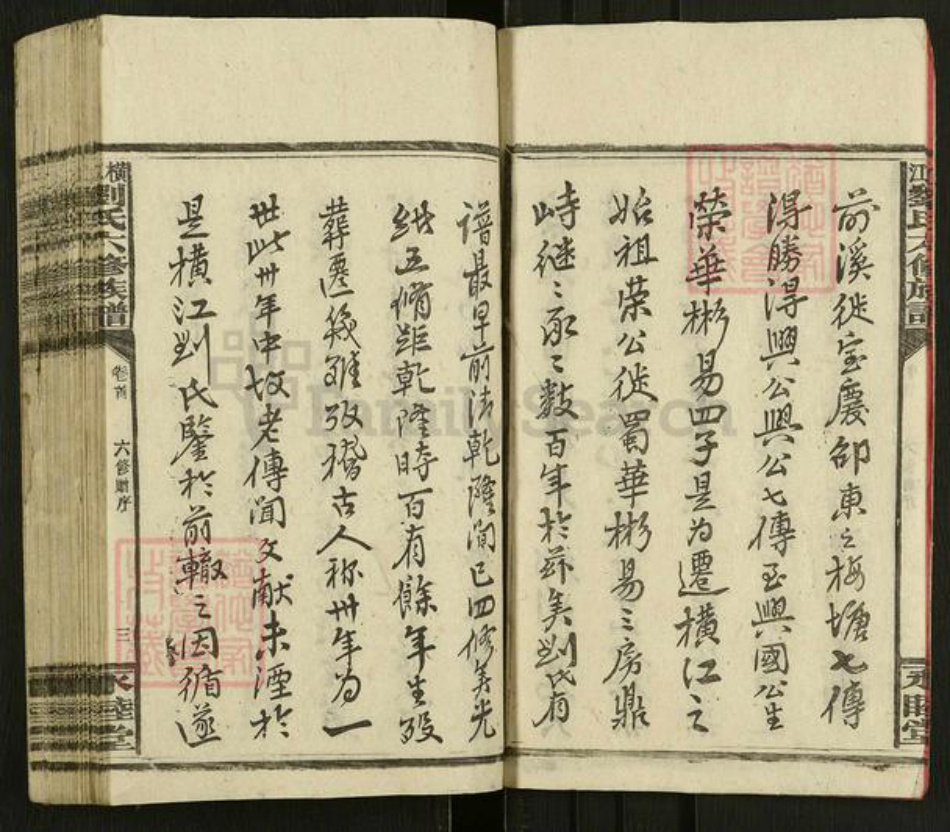 前溪徙宝慶邵東之梅塘七傳
得勝淂興公興公七傳至興國公生
榮華彬易四子是为遷橫江之
始祖荣公徙蜀華彬易三房鼎
峙继〻承〻数百年於茲矣劉氏有
譜最早前清乾隆间已四修矣光
緒五脩距乾隆時百有餘年生殁
葬遷幾難攷稽古人称卅年为一
世此卅年中故老傳闻文献未湮於
是橫江刘氏鑒於前轍之因循遂
橫
劉氏六修族譜
卷首
六修贈序
三
永睦堂
FamilySearch